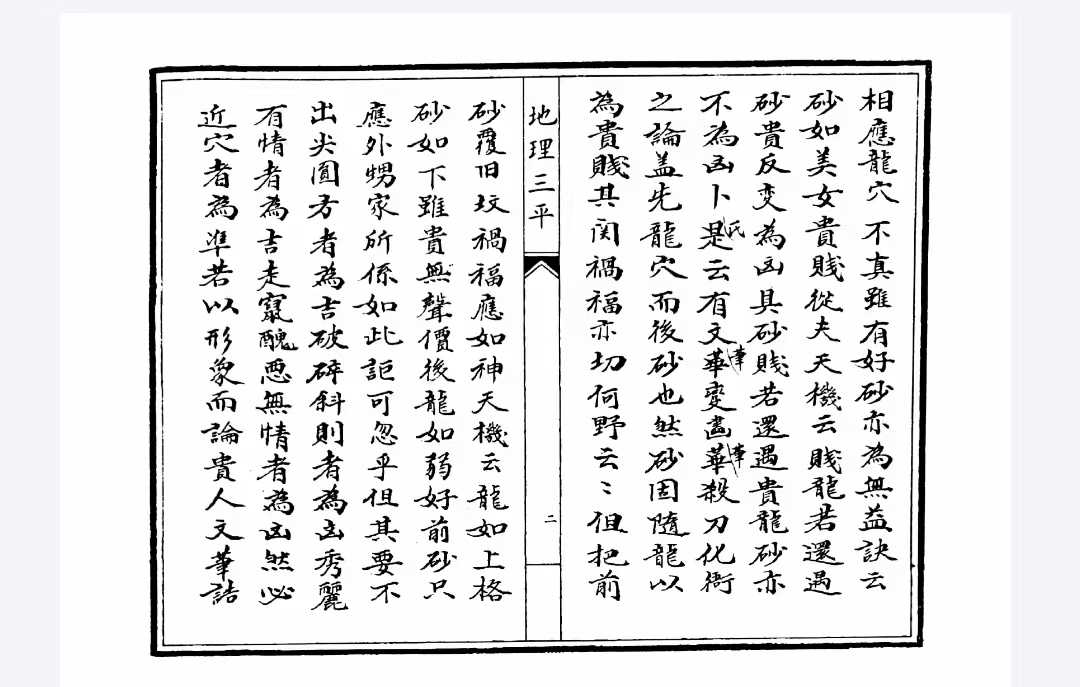 相應龍穴不真雖有好砂亦為無益訣云
砂如美女貴賤從夫天機云賤龍若還遇
砂貴反变為凶具砂賤若還遇貴龍砂亦
不為凶卜是云有文華変畫華殺刀化衙
氏
筆
筆
之論盖先龍穴而後砂也然砂固隨龍以
為貴賤其関禍福亦切何野云〻但把前
地理三平
二
砂覆旧坟禍福應如神天機云龍如上格
砂如下雖貴無聲價後龍如弱好前砂只
應外甥家所係如此詎可忽乎但其要不
出尖圓方者為吉破碎斜則者為凶秀麗
有情者為吉走竄醜恶無情者為凶然必
近穴者為凖若以形象而論貴人文筆誥